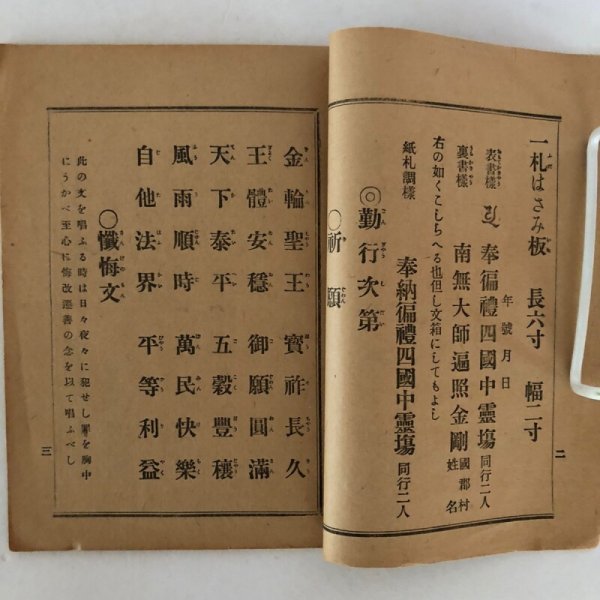 一札はさみ板　長六寸　幅二寸
年號月日
表書樣　奉徧禮四國中靈塲　同行二人
裏書樣　南無大師遍照金剛　國郡村　姓名
右の如くこしらへる也但し文箱にしてもよし
紙札調樣　奉納徧禮四國中靈塲　同行二人
◎勤行次第
○祈願
二
金輪聖王　寳祚長久
王體安穩　御願圓滿
天下泰平　五穀豐穰
風雨順時　萬民快樂
自他法界　平等利益
○懺悔文
此の文を唱ふる時は日々夜々に犯せし罪を胸中
にうかべ至心に悔改遷善の念を以て唱ふべし
三